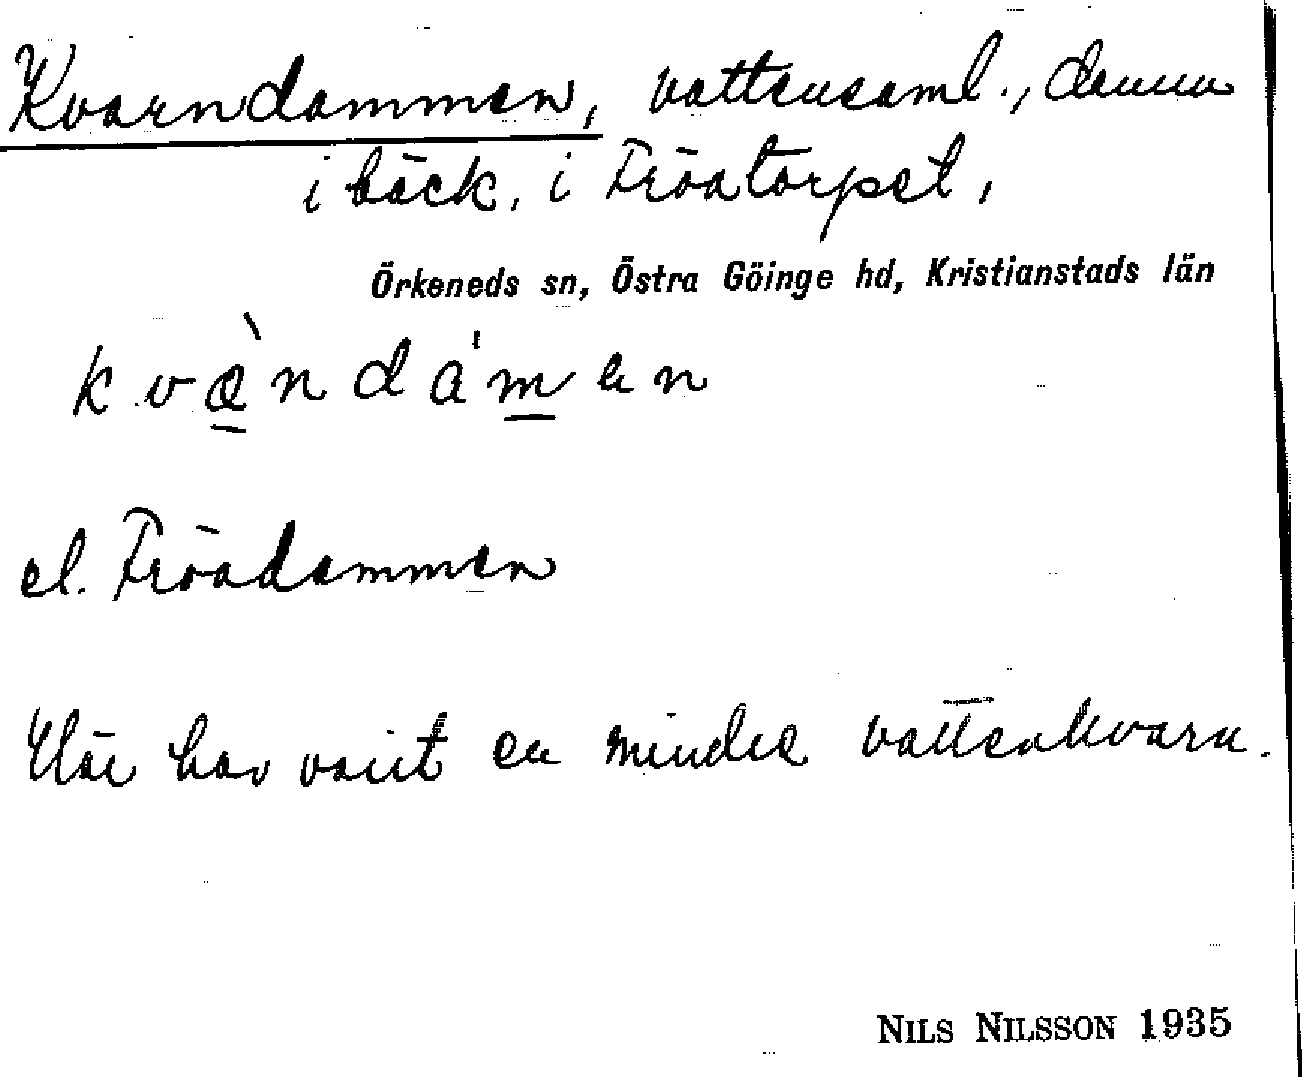 Kvarndammen, vattensaml., damm
i bäck, i Fröatorpet,
Örkeneds sn, Östra Göinge hd, Kristianstads län
k v à̠ n d a ' m̲ e n
el. Fröadammen
Här har varit en mindre vattenkvarn.
NILS NILSSON 1935